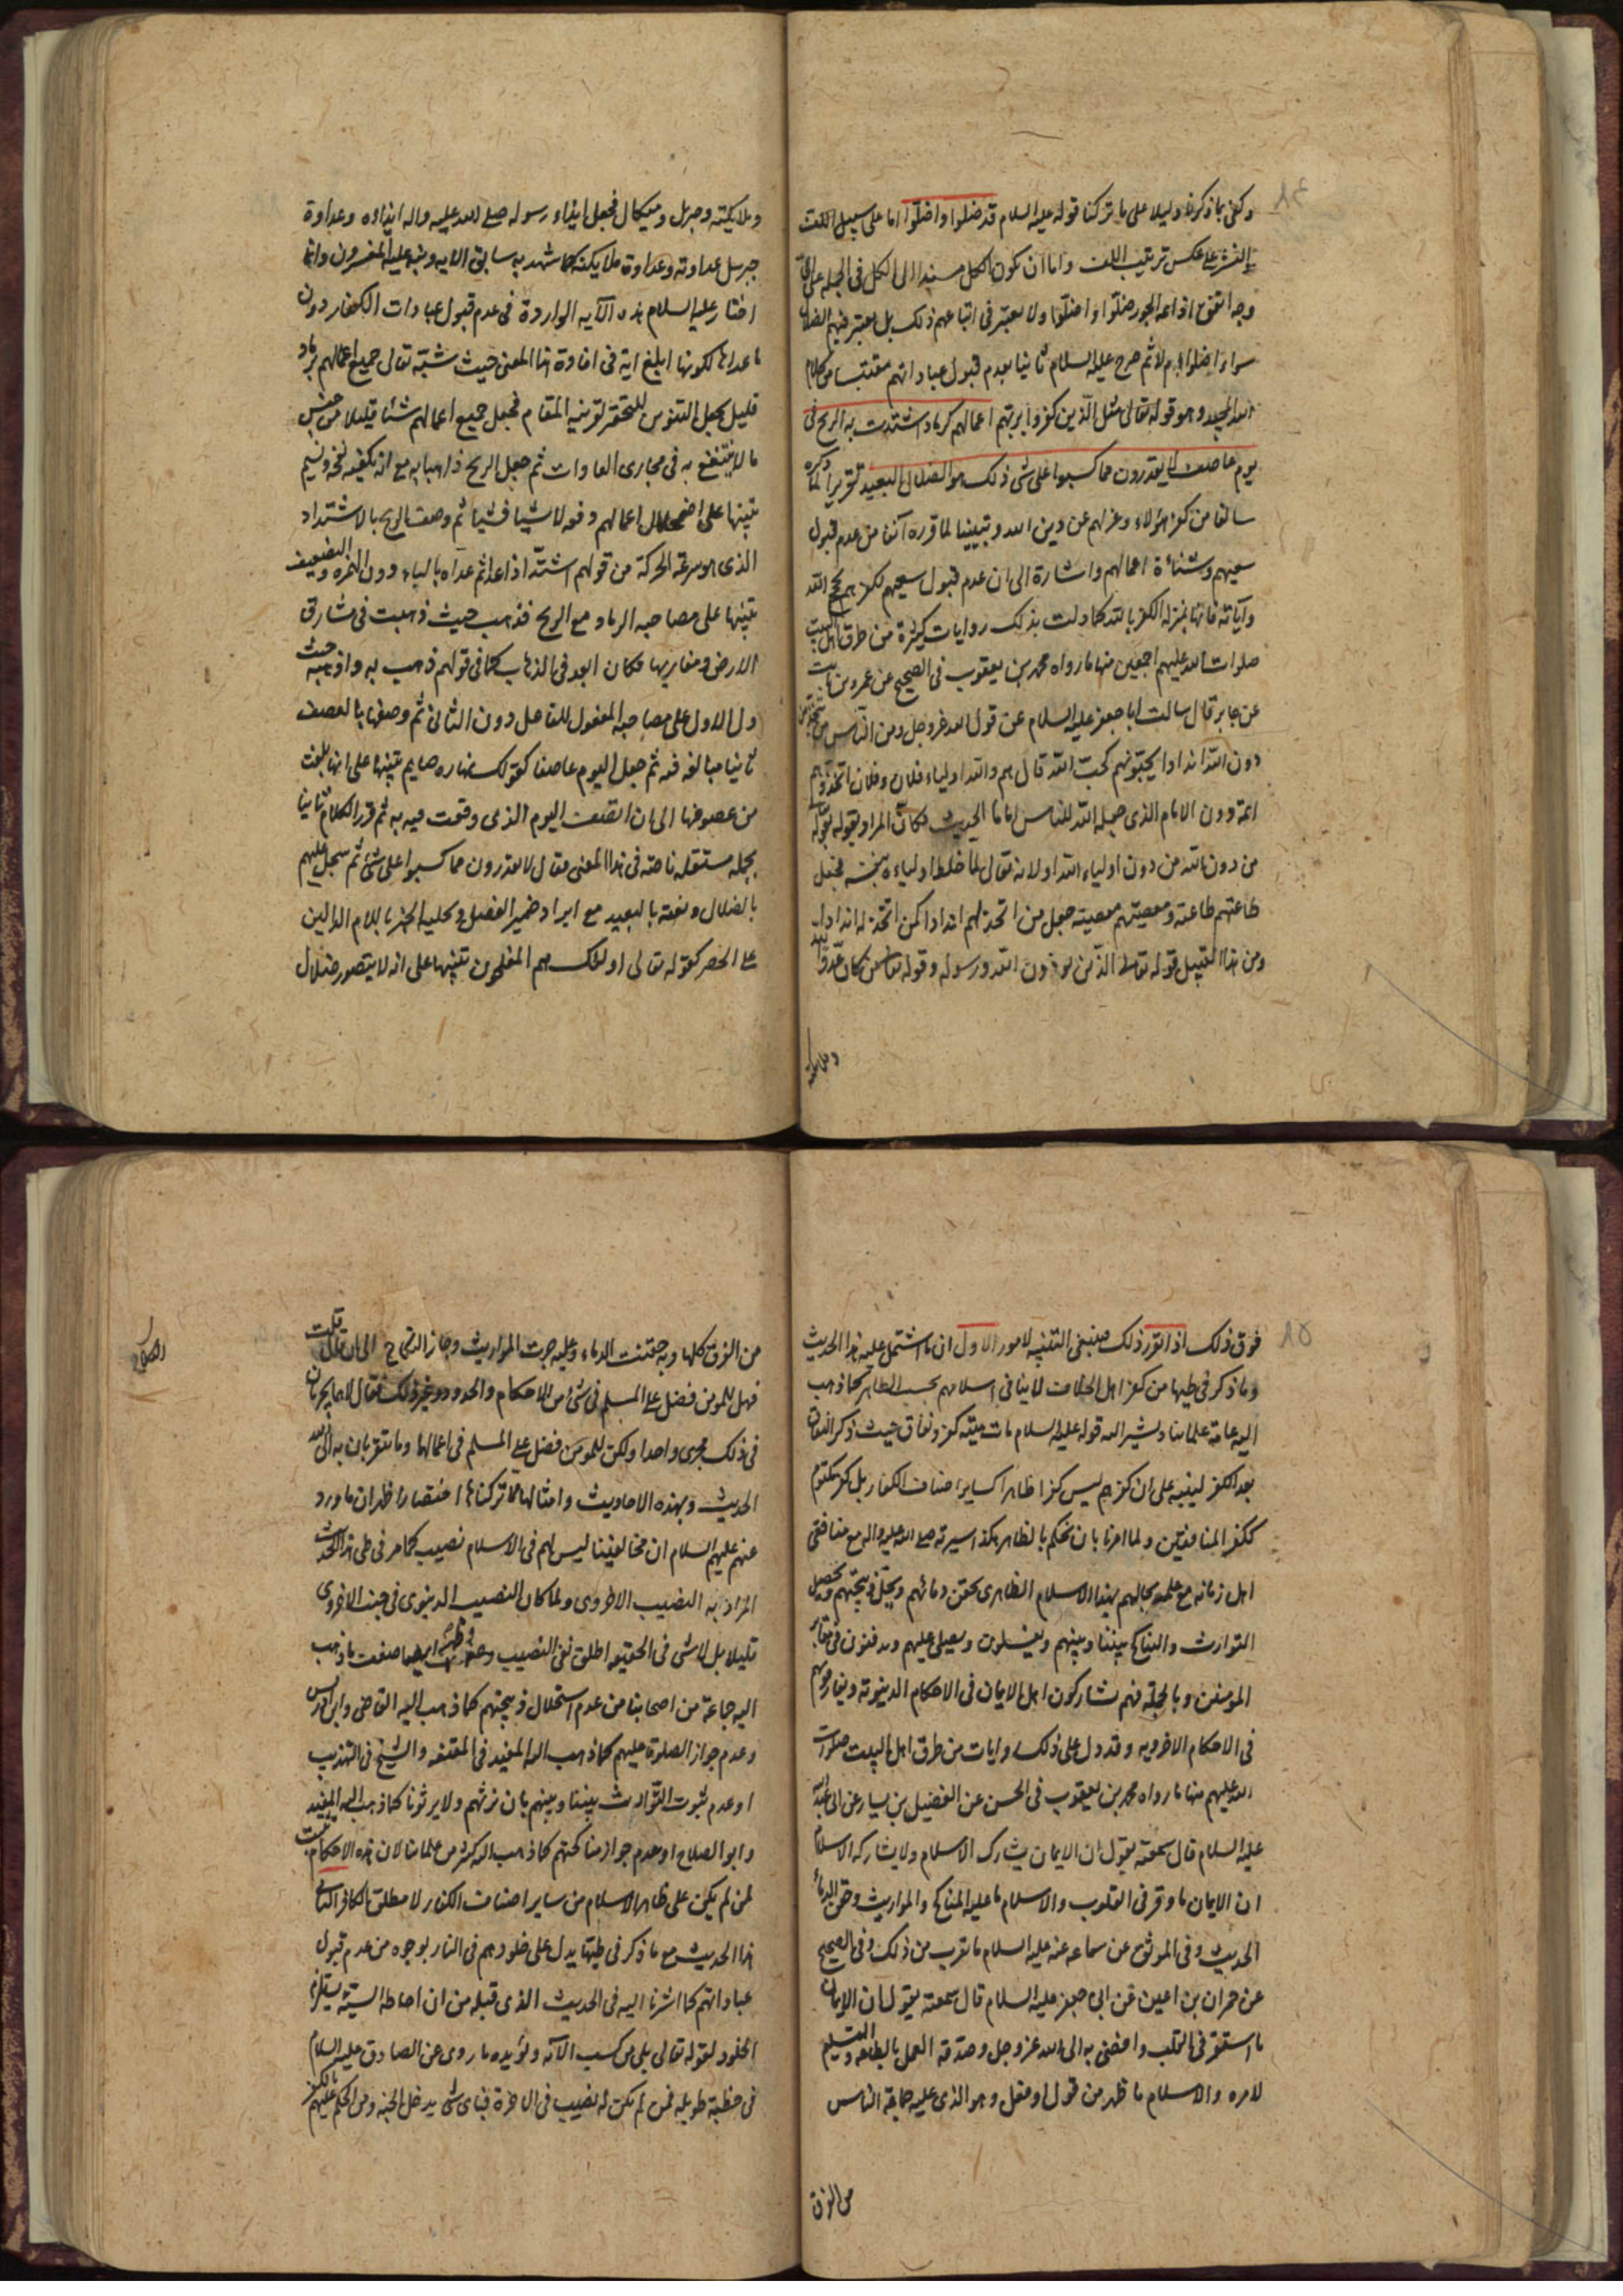 ٨٤
وكفى بما ذكرنا دليلا على ما تركنا قوله عليه السلام قد ضلوا واضلوا اما على سبيل اللف
النشر على عكس ترتيب اللف واما ان يكون الكل مسندا الى الكل في الجملة على اى
وجه اتفق اذ ائمة الجور ضلوا واضلوا ولا يعتبر في اتباعهم ذلك بل يعتبر فيهم الضلال
سواء اضلوا ام لا ثم صرح عليه السلام ثانيا بعدم قبول عباداتهم مقتبسا من كلام
الله المجيد وهو قوله تعالى مثل الذين كفروا بربهم اعمالهم كرماد اشتدت به الريح فى
يوم عاصف لا يقدرون مما كسبوا على شى ذلك هو الضلال البعيد تقريرا لما ذكره
سالفا من كفر هؤلاء وعزلهم عن دين الله وتبيينا لما قرره آنفا من عدم قبول
سعيهم وشناءة اعمالهم واشارة الى ان عدم قبول سعيهم لكفرهم بحجج الله
وآياته فانها بمنزلة الكفر بالله كما دلت بذلك روايات كثيرة من طرق اهل البيت
صلوات الله عليهم اجمعين منها ما رواه محمد بن يعقوب فى الصحيح عن عمرو بن ثابت
عن جابر قال سالت ابا جعفر عليه السلام عن قول الله عز وجل ومن الناس من يتخذ من
دون الله اندادا يحبونهم كحب الله قال هم والله اولياء فلان وفلان اتخذوهم
ائمة دون الامام الذى جعله الله للناس اماما الحديث فكان المراد بقوله تعالى
من دون الله من دون اولياء الله او لانه تعالى لما خلط اولياءه بنفسه فجعل
طاعتهم طاعته ومعصيتهم معصيته جعل من اتخذ لهم اندادا كمن اتخذ له اندادا
ومن هذا القبيل قوله تعالى الذين يوذون الله ورسوله وقوله تعالى من كان عدوا لله
وملائكته
وملائكته وجبريل وميكال فجعل ايذاء رسوله صلى الله عليه واله ايذاءه وعداوة
جبريل عداوته وعداوة ملائكته كما شهد به سابق الايه ونبه عليه المفسرون وانما
اختار عليه السلام هذه الآيه الواردة فى عدم قبول عبادات الكفار دون
ما عداها لكونها ابلغ اية فى افادة هذا المعنى حيث شبه تعالى جميع اعمالهم برماد
قليل بجعل التنوين للتحقير لقرينة المقام فجعل جميع اعمالهم شيئا قليلا من جنس
ما لا ينتفع به فى مجارى العادات ثم جعل الريح ذاهبا به مع انه يكفيه نفخ ونسيم
تنبيها على اضمحلال اعمالهم دفعة لا شيئا فشيئا ثم وصف الريح بالاشتداد
الذى هو سرعة الحركة من قولهم اشتد اذا عدا ثم عداه بالباء دون الهمزه والتضعيف
تنبيها على مصاحبة الرماد مع الريح فذهب حيث ذهبت فى مشارق
الارض ومغاربها فكان ابعد فى الذهاب كما فى قولهم ذهب به واذهبه حيث
دل الاول على مصاحبة المفعول للفاعل دون الثانى ثم وصفها بالعصف
ثانيا مبالغة فيه ثم جعل اليوم عاصفا كقولك نهاره صايم تنبيها على انها بلغت
من عصوفها الى ان اتصف اليوم الذى وقعت فيه به ثم قرر الكلام ثانيا
بجملة مستقلة ناصة فى هذا المعنى فقال لا يقدرون مما كسبوا على شئ ثم سجل عليهم
بالضلال ونعته بالبعيد مع ايراد ضمير الفصل وتحلية الخبر باللام الدالين
على الحصر كقوله تعالى اولئك هم المفلحون تنبيها على انه لا يتصور ضلال
٨٥
فوق ذلك اذا تقرر ذلك فينبغى التنبيه لامور الاول ان ما اشتمل عليه هذا الحديث
وما ذكر فى طيها من كفر اهل الخلاف لا ينافى اسلامهم بحسب الظاهر كما ذهب
اليه عامة علمائنا ويشير اليه قوله عليه السلام مات ميتة كفر ونفاق حيث ذكر النفاق
بعد الكفر لينبه على ان كفرهم ليس كفرا ظاهرا كساير اصناف الكفار بل كفر مكتوم
ككفر المنافقين ولما امرنا بان نحكم بالظاهر هكذا سيرته صلى الله عليه واله مع منافقى
اهل زمانه مع علمه بحالهم فبهذا الاسلام الظاهرى يحقن دمائهم ويحل ذبيحتهم ويحصل
التوارث والتناكح بيننا وبينهم ويغسلون ويصلى عليهم ويدفنون فى مقابر
المومنين وبالجملة فهم يشاركون اهل الايمان فى الاحكام الدنيوية ويفارقونهم
فى الاحكام الاخرويه وقد دل على ذلك روايات من طرق اهل البيت صلوات
الله عليهم منها ما رواه محمد بن يعقوب فى الحسن عن الفضيل بن يسار عن ابى عبد الله
عليه السلام قال سمعته يقول ان الايمان يشارك الاسلام ولا يشاركه الاسلام
ان الايمان ما وقر فى القلوب والاسلام ما عليه المناكح والمواريث وحقن الدماء
الحديث وفى الموثق عن سماعه عنه عليه السلام ما يقرب من ذلك وفى الصحيح
عن حمران بن اعين عن ابى جعفر عليه السلام قال سمعته يقول ان الايمان
ما استقر فى القلب وافضى به الى الله عز وجل وصدقه العمل بالطاعه والتسليم
لامره والاسلام ما ظهر من قول او فعل وهو الذى عليه جماعة الناس
من الفرق
من الفرق كلها وبه حقنت الدماء وعليه جرت المواريث وجاز النكاح الى ان قال قلت
فهل للمومن فضل على المسلم فى شئ من الاحكام والحدود وغير ذلك فقال لا هما يجريان
فى ذلك مجرى واحدا ولكن للمومن فضل على المسلم فى اعمالها وما يتقربان به الى الله
الحديث وبهذه الاحاديث وامثالها مما تركناها اختصارا ظهر ان ما ورد
عنهم عليهم السلام ان مخالفينا ليس لهم فى الاسلام نصيب كما مر فى طى هذا الحديث
المراد به النصيب الاخروى ولما كان النصيب الدنيوى فى جنب الاخروى
قليلا بل لا شى فى الحقيقة اطلق نفى النصيب وظهر ايضا ضعف ما ذهب
اليه جماعة من اصحابنا من عدم استحلال ذبيحتهم كما ذهب اليه القاضى وابن ادريس
وعدم جواز الصلوة عليهم كما ذهب اليه المفيد فى المقنعه والشيخ فى التهذيب
او عدم ثبوت التوارث بيننا وبينهم بان نرثهم ولا يرثونا كما ذهب اليه المفيد
وابو الصلاح او عدم جواز مناكحتهم كما ذهب اليه كثير من علمائنا لان هذه الاحكام
لمن لم يكن على ظاهر الاسلام من ساير اصناف الكفار لا مطلق الكافر الثانى
هذا الحديث مع ما ذكر فى طيها يدل على خلودهم فى النار بوجوه من عدم قبول
عباداتهم كما اشرنا اليه فى الحديث الذى قبله من ان احاطة السيئة يستلزم
الخلود لقوله تعالى بلى من كسب الآيه ويؤيده ما روى عن الصادق عليه السلام
فى خطبة طويله فمن لم يكن له نصيب فى الاخرة فباى شى يدخل الجنه ومن الحكم عليهم بالكفر